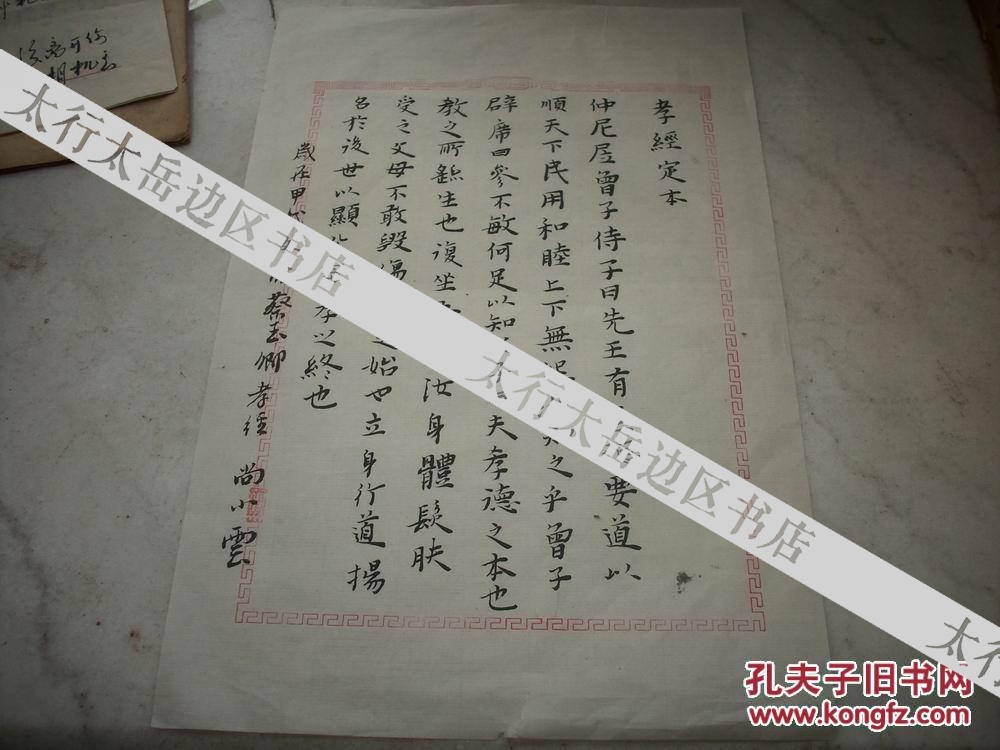 孝經定本
仲尼凥曾子侍子曰先王有要道以
順天下民用和睦上下無之乎曾子
辟席曰參不敏何足以知夫孝德之本也
教之所繇生也復坐汝身體髮膚
受之父母不敢毀傷始也立身行道揚
名於後世以顯孝之終也
歲在甲蔡玉卿孝經 尚小雲
太行太岳边区书店
太行太岳边区书店
太行
孔夫子旧书网
www.kongfz.com